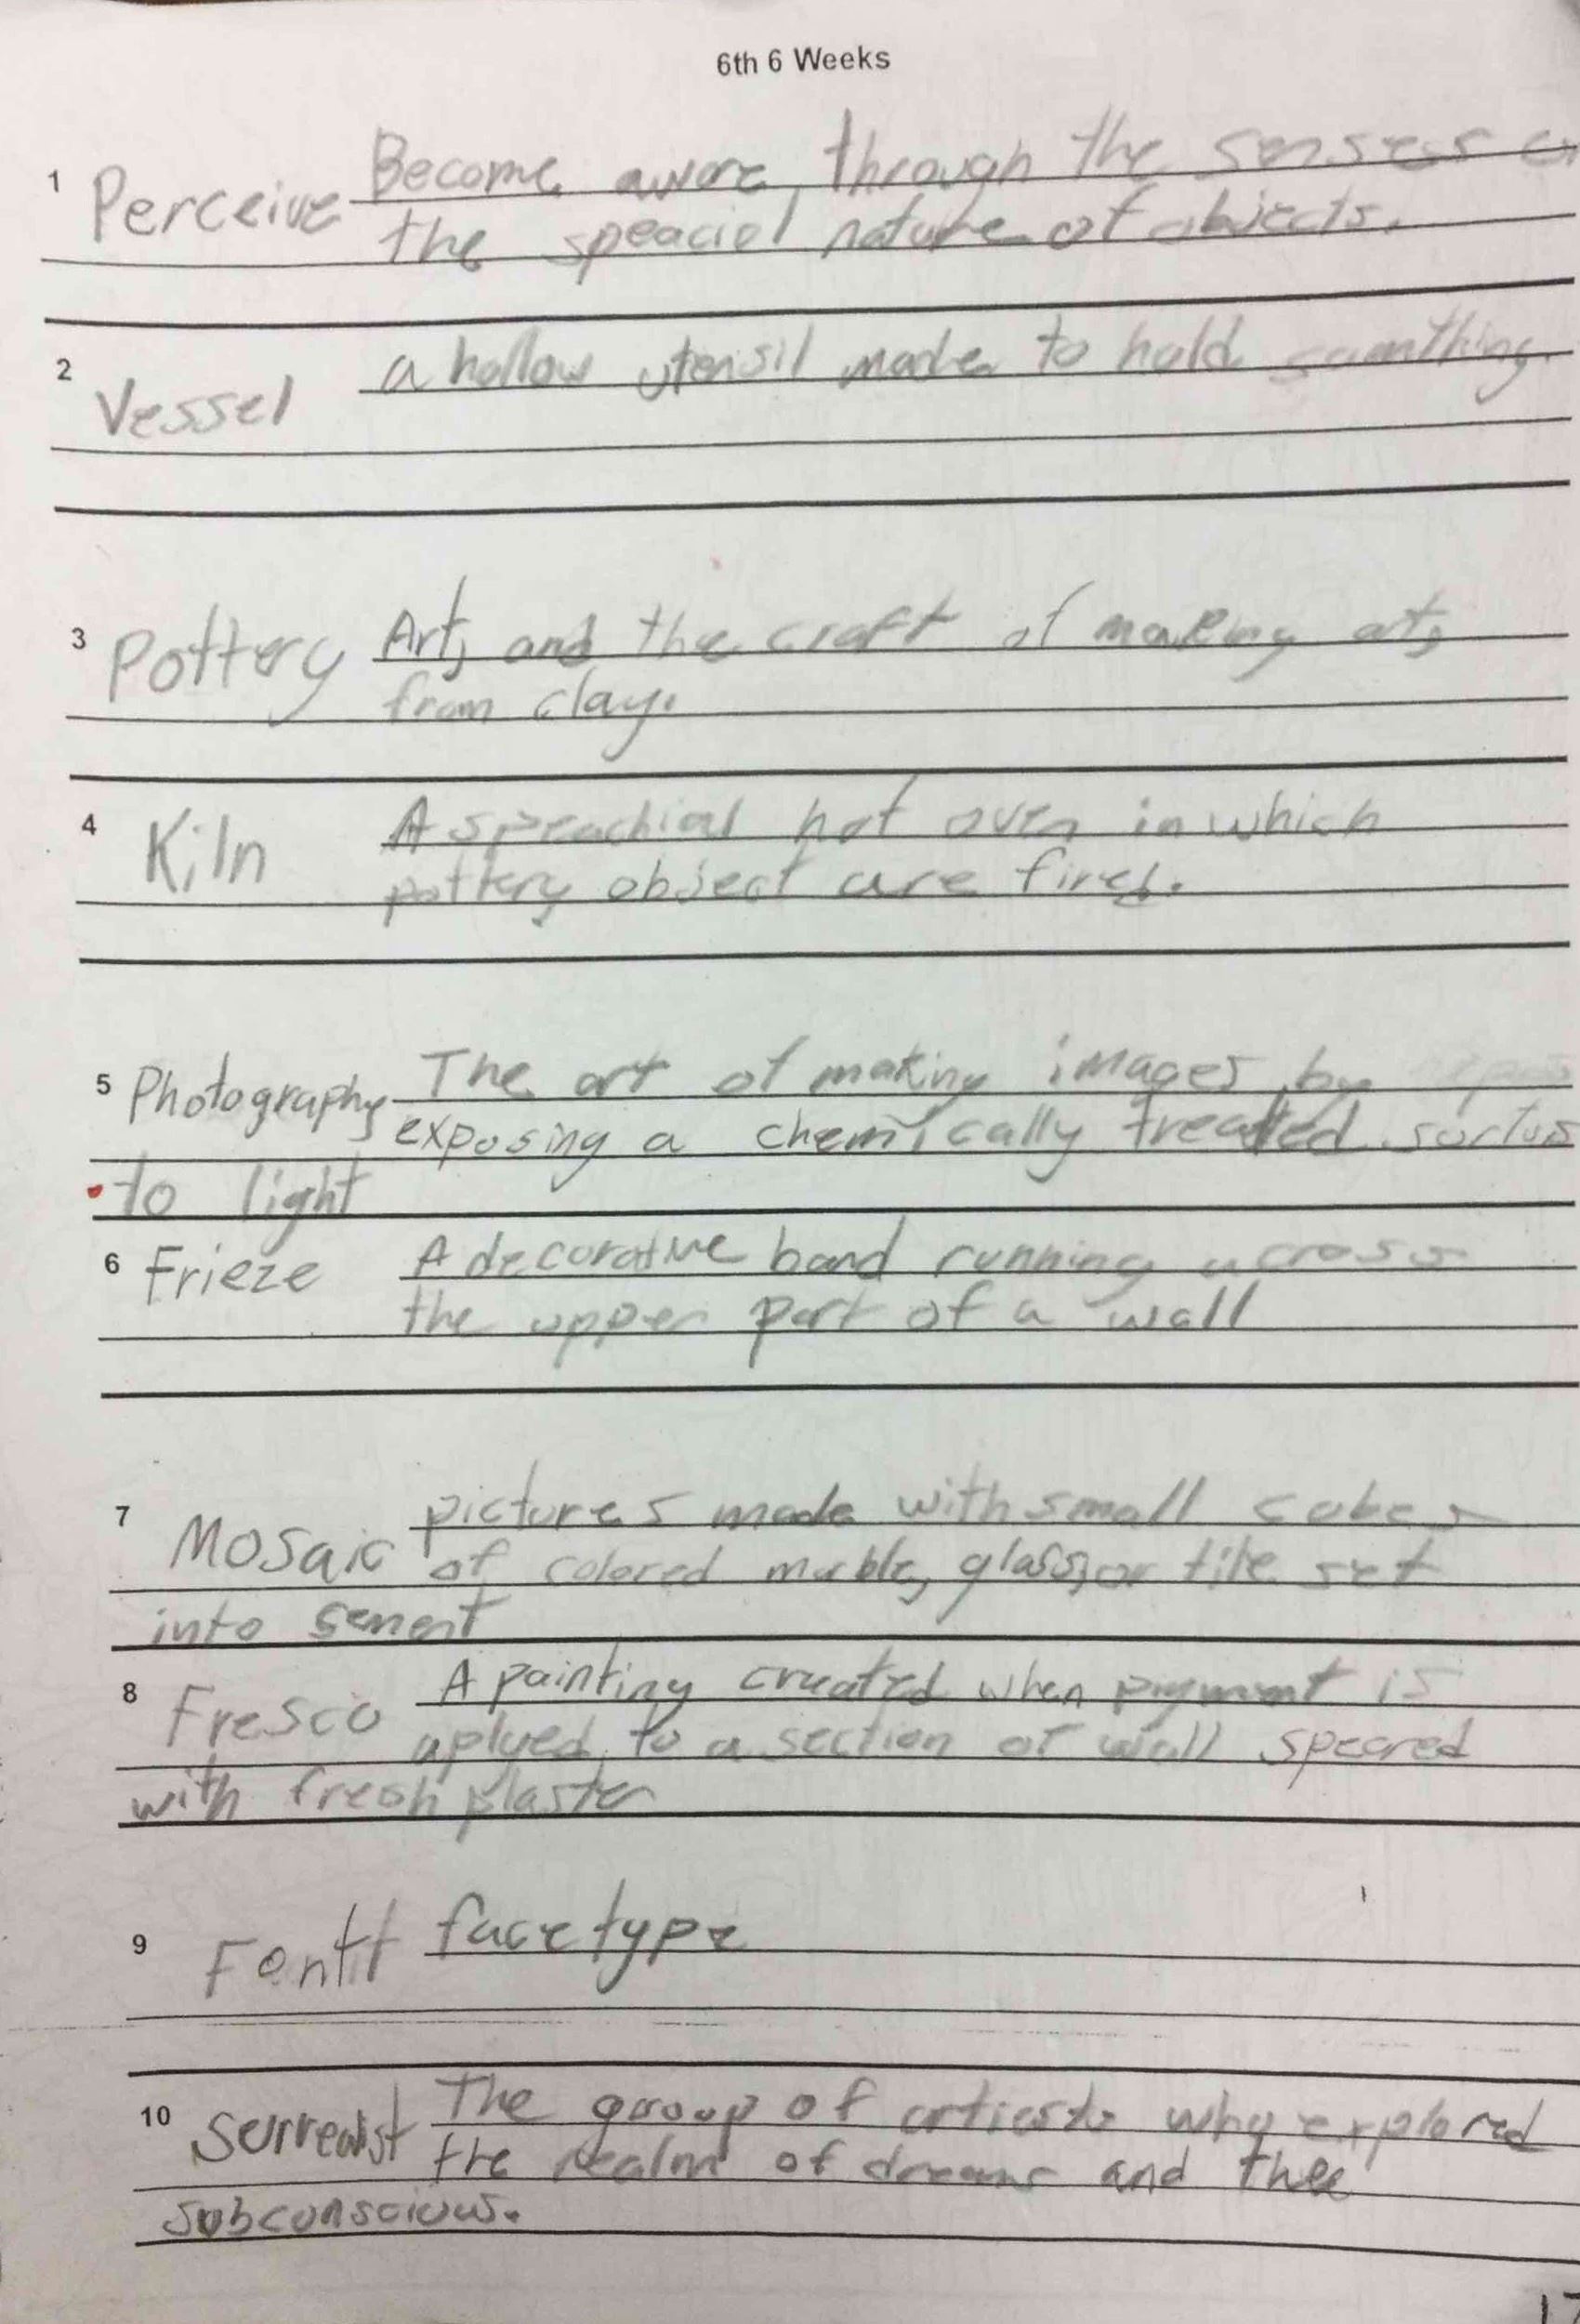 6th 6 Weeks
1 Perceive Become aware, through the senses
the speacial nature of objects.
2 Vessel a hollow utensil made to hold
3 Pottery Art, and the craft of making art,
from clay.
4 Kiln A speachial hot oven in which
pottery object are fired.
5 Photography The art of making images by
exposing a chemically treated
to light
6 Frieze A decorative band running across
the upper part of a wall
7 Mosaic pictures made with small cubes
of colored marble, glass, or tile set
into sement
8 Fresco A painting created when pigment is
aplyed to a section of wall speared
with fresh plaster
9 facetype
10 The group of why explored
the realm of dreams and thee
subconscious.
17